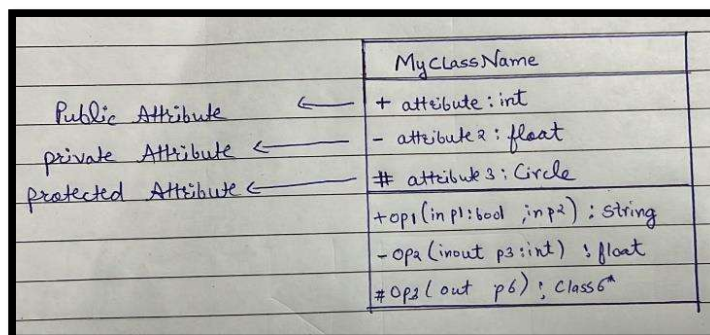 MyClassName
Public Attribute ← + attribute : int
private Attribute ← - attribute 2 : float
protected Attribute ← # attribute 3 : Circle
+op1(in p1:bool ,in p2) : String
-op2 (inout p3:int) : float
#Op3 ( out p6) : Class6*